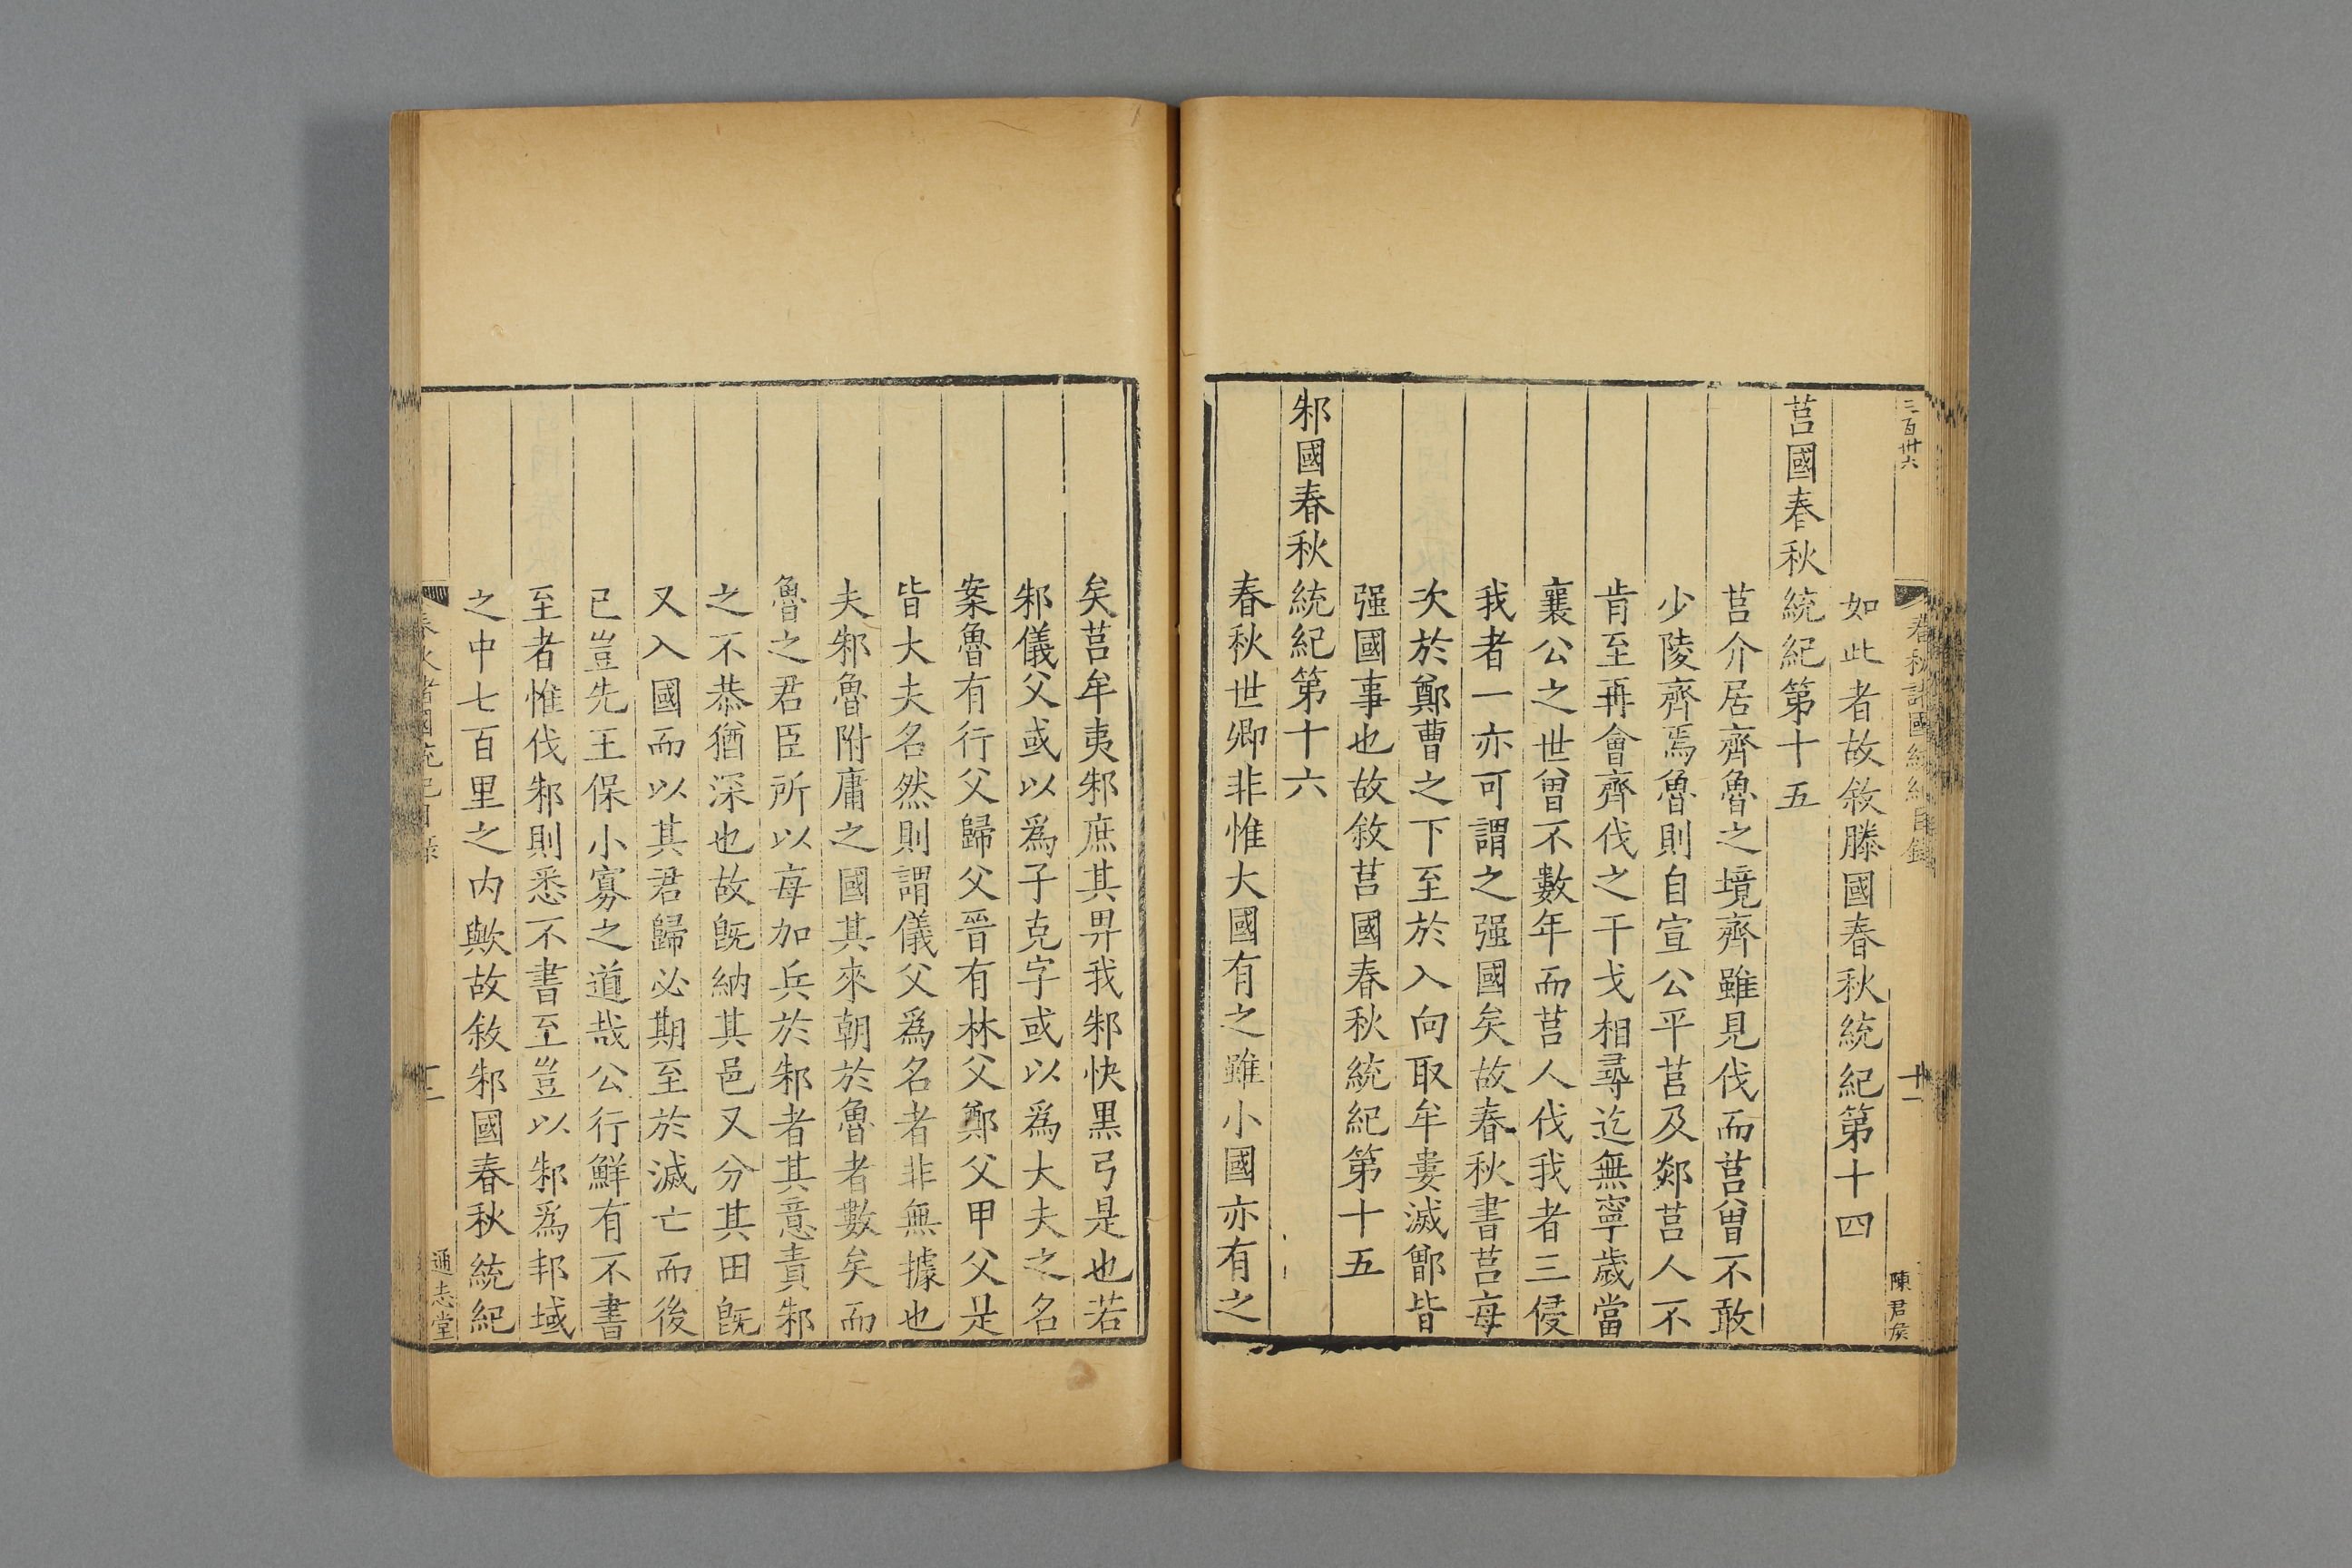 三百卅六
春秋諸國統紀目錄
十一
陳君侯
如此者故敘滕國春秋統紀第十四
莒國春秋統紀第十五
莒介居齊魯之境齊雖見伐而莒曾不敢
少陵齊焉魯則自宣公平莒及郯莒人不
肯至再會齊伐之干戈相尋迄無寧歲當
襄公之世曾不數年而莒人伐我者三侵
我者一亦可謂之强國矣故春秋書莒每
次於鄭曹之下至於入向取牟婁滅鄫皆
强國事也故敘莒國春秋統紀第十五
邾國春秋統紀第十六
春秋世卿非惟大國有之雖小國亦有之
矣莒牟夷邾庶其畀我邾快黑弓是也若
邾儀父或以爲子克字或以爲大夫之名
案魯有行父歸父晉有林父鄭父甲父是
皆大夫名然則謂儀父爲名者非無據也
夫邾魯附庸之國其來朝於魯者數矣而
魯之君臣所以每加兵於邾者其意責邾
之不恭猶深也故旣納其邑又分其田旣
又入國而以其君歸必期至於滅亡而後
已豈先王保小寡之道哉公行鮮有不書
至者惟伐邾則悉不書至豈以邾爲邦域
之中七百里之內歟故敘邾國春秋統紀
春秋諸國統紀目錄
通志堂